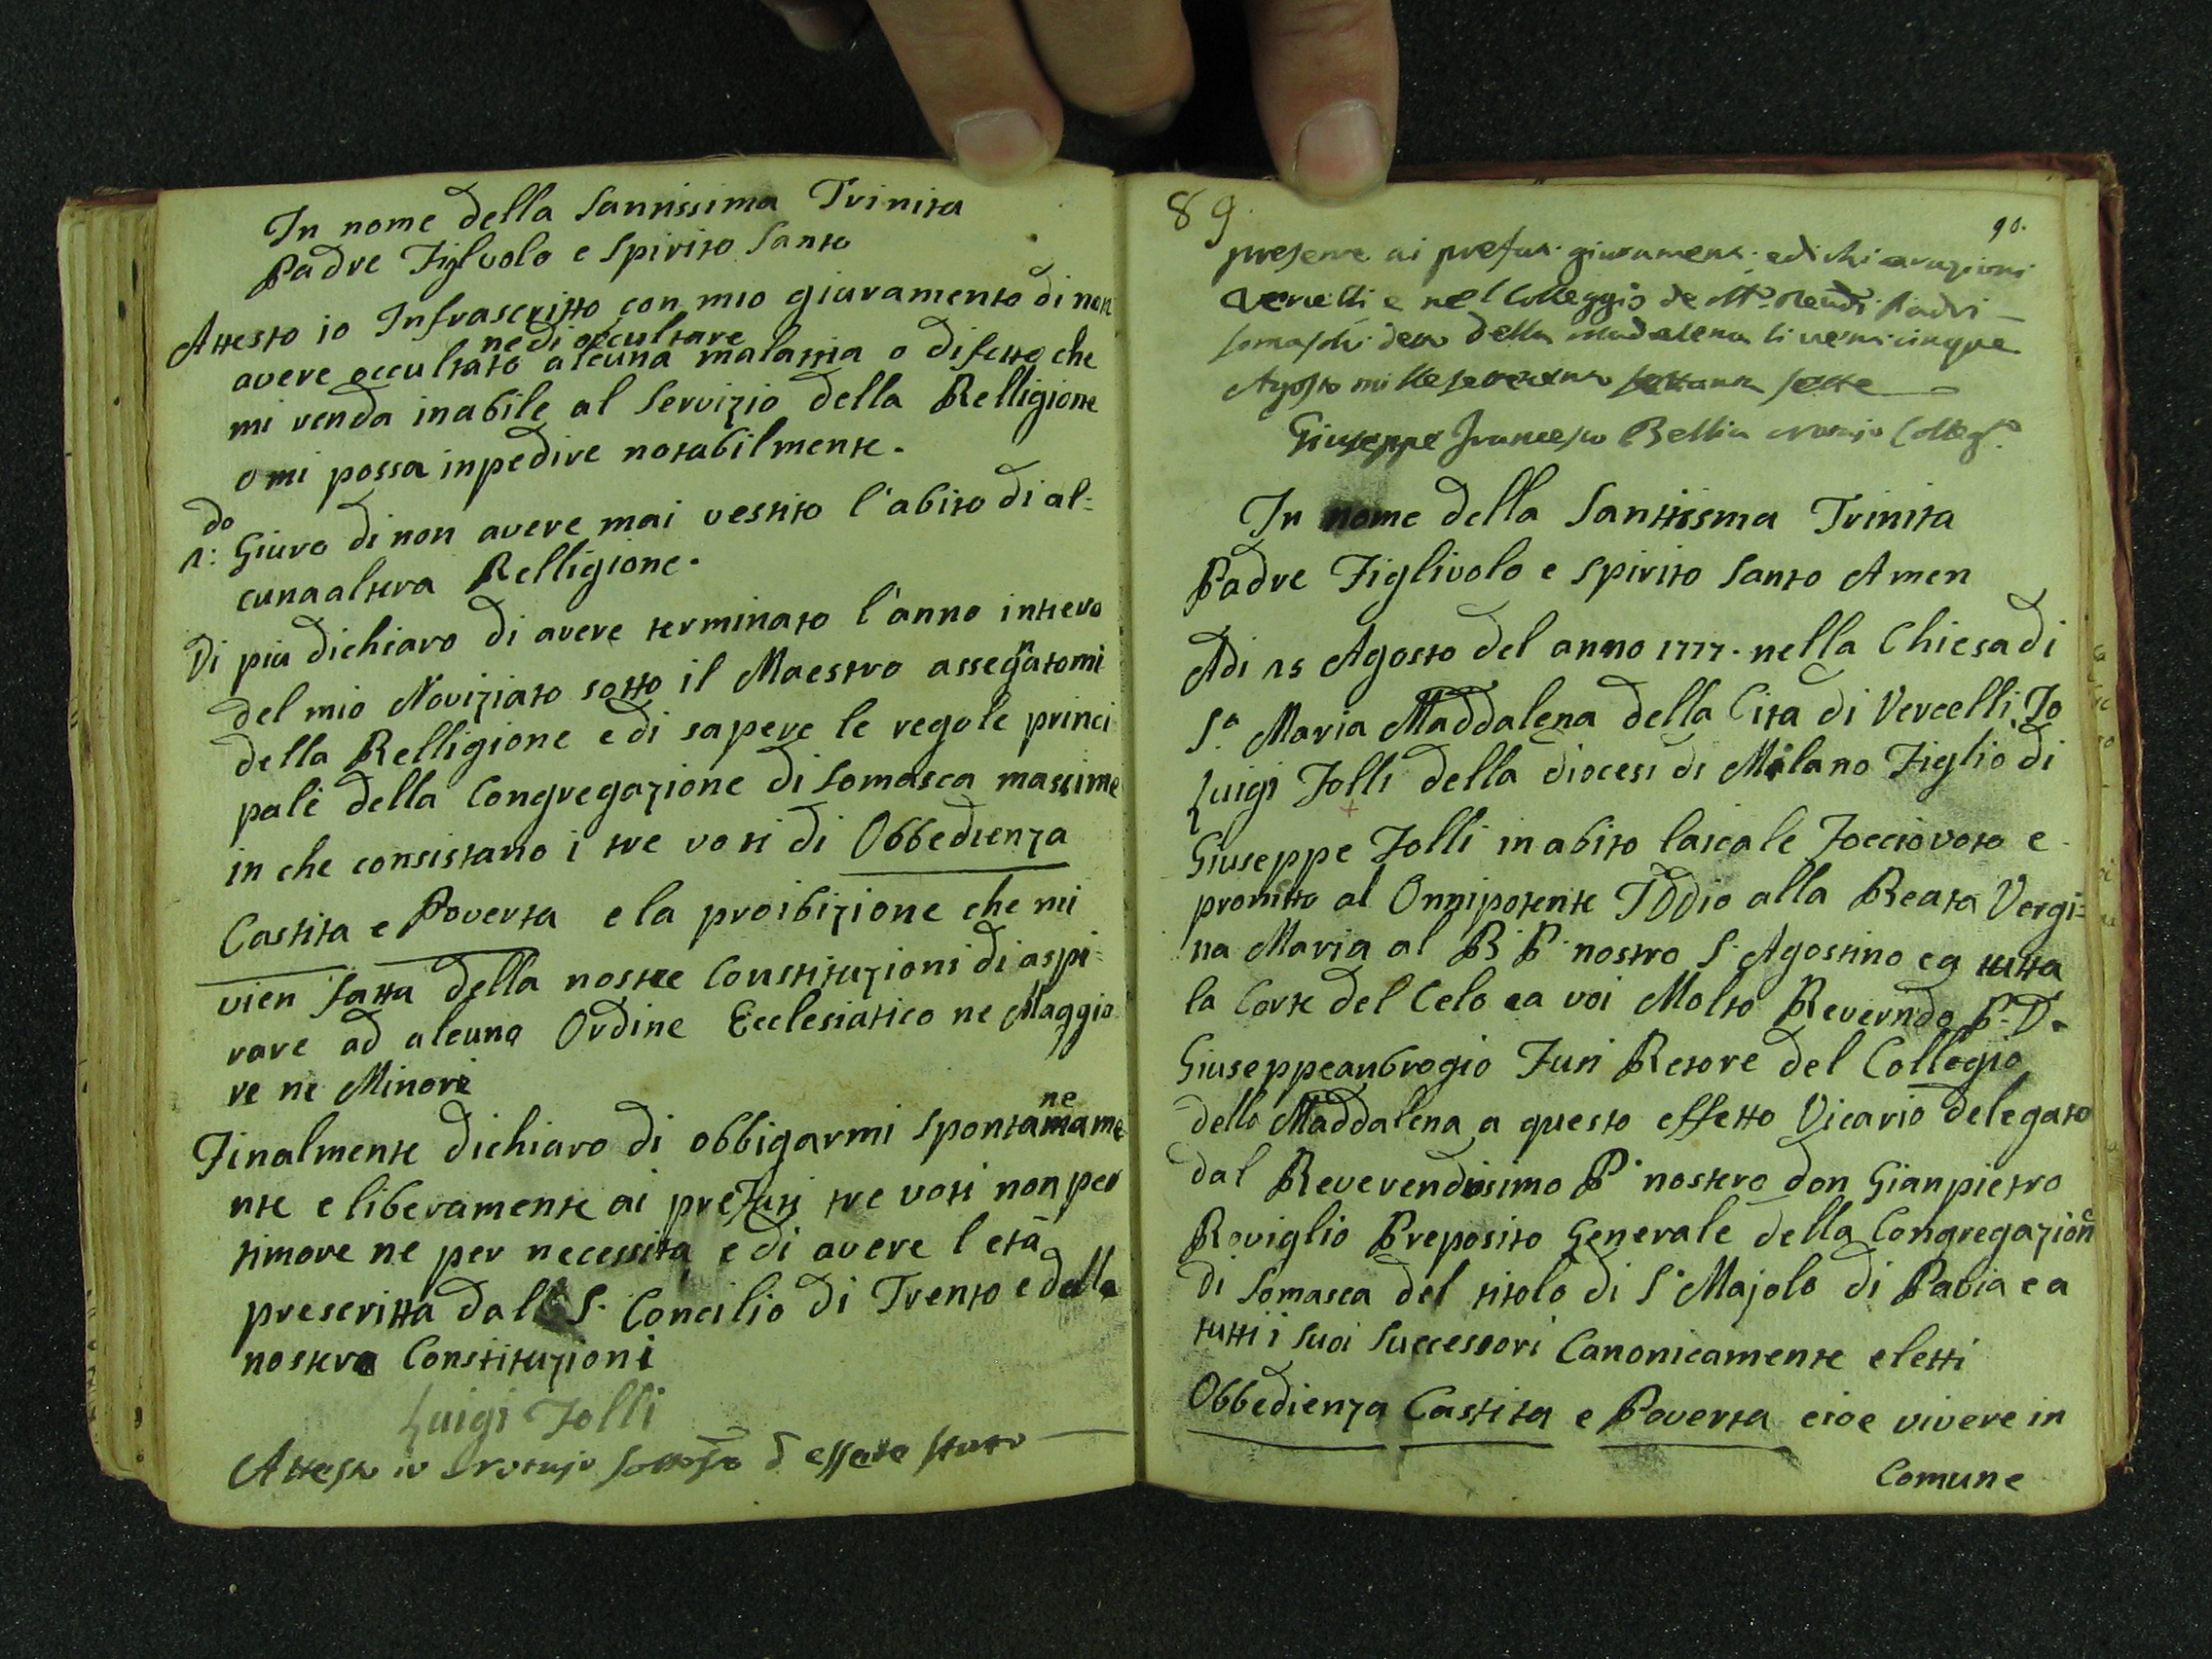 In nome della Santissima Trinita
Padre Figluolo e Spirito Santo
Attesto io Infrascritto con mio giuramento di non
ne di occultare
avere occultato alcuna malattia o difetto che
mi renda inabile al Servizio della Relligione
o mi possa inpedire notabilmente.
do
2: Giuro di non avere mai vestito l'abito di al=
cuna altera Relligione.
Di piu dichiaro di avere terminato l'anno intiero
del mio Noviziato sotto il Maestro assegnatomi
della Relligione e di sapere le regole princi
pale della Congregazione di Somasca massime
in che consistano i tre voti di Obbedienza
Castita e Poverta e la proibizione che mi
vien fatta della nostre Constituzioni di aspi=
rare ad alcuno Ordine Ecclesiatico ne Maggio
re ne Minore
ne
Finalmente dichiaro di obbigarmi spontamame
nte e liberamente ai prefati tre voti non per
timore ne per necessita e di avere l età
prescritta dall S. Concilio di Trento e dalla
nostera Constituzioni
Luigi Folli
Attesto io Notajo sottosto d'essere stato
89.
90.
presente ai prefati giuramenti e dichiarazioni
Vercelli e nel Colleggio de Mto Rendi Padri
Somaschi detto della Madalena li venticinque
Agosto mille settecento settanta sette
Giuseppe Francesco Bellia Notajo Collegto
In nome della Santissima Trinita
Padre Figlivolo e Spirito Santo Amen
Adi 25 Agosto del anno 1777. nella Chiesa di
Sa Maria Maddalena della Cita di Vercelli, Io
Luigi Folli della diocesi di Milano Figlio di
Giuseppe Folli in abito laicale Foccio voto e
promitto al Onnipotente IDDio alla Beata Vergi=
na Maria al B. P. nostro S. Agostino e a tutta
la Corte del Celo e a voi Molto Reverndo P. D.
Giuseppeanbrogio Fusi Retore del Collegio
della Maddalena a questo effetto Vicario delegato
dal Reverendisimo P. nostero don Gianpietro
Roviglio Preposito Generale della Congregazione
di Somasca del titolo di S. Majolo di Pavia e a
tutti i suoi Successori Canonicamente eletti
Obbedienza Castita e Poverta cioe vivere in
Comune